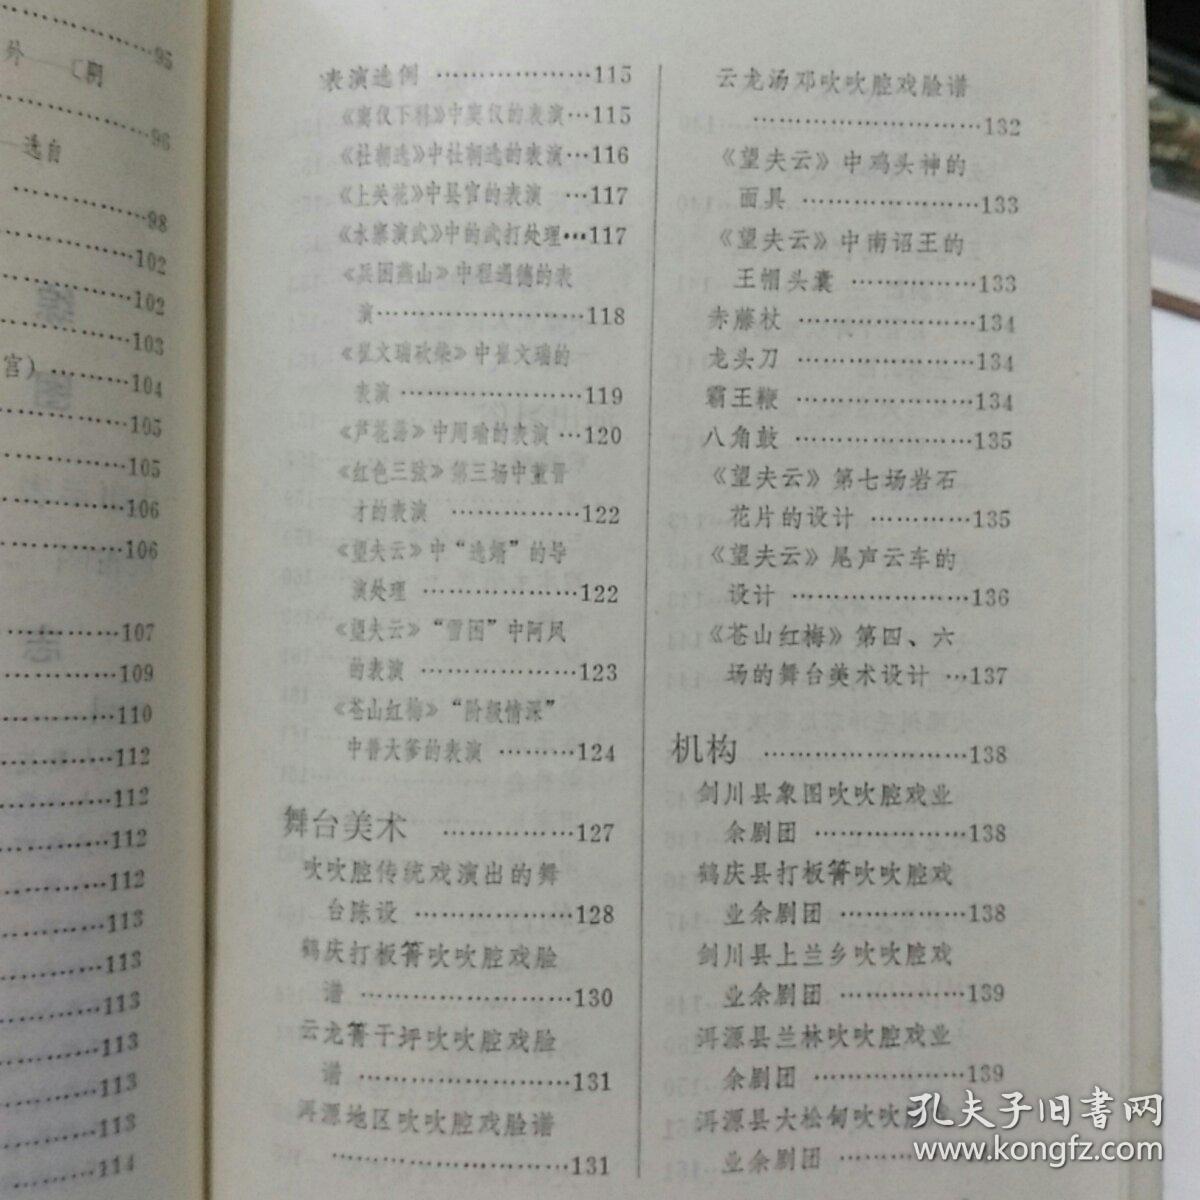 95
外
96
选自
98
102
102
103
宫）………104
105
105
106
106
107
109
110
112
112
112
112
113
113
113
113
113
113
114
表演选例 ………………115
《窦仪下科》中窦仪的表演…115
《杜朝选》中杜朝选的表演…116
《上关花》中县官的表演 …117
《水寨演武》中的武打处理…117
《兵困燕山》中程遇德的表
演……………………118
《崔文瑞砍柴》中崔文瑞的
表演…………………119
《芦花荡》中周瑜的表演…120
《红色三弦》第三场中董晋
才的表演 ……………122
《望夫云》中“选婿”的导
演处理 ………………122
《望夫云》“雪困”中阿凤
的表演 ………………123
《苍山红梅》“阶级情深”
中普大爹的表演 ………124
舞台美术 ……………127
吹吹腔传统戏演出的舞
台陈设 ………………128
鹤庆打板箐吹吹腔戏脸
谱 ……………………130
云龙箐干坪吹吹腔戏脸
谱 ……………………131
洱源地区吹吹腔戏脸谱
………………………131
云龙汤邓吹吹腔戏脸谱
………………………132
《望夫云》中鸡头神的
面具 …………………133
《望夫云》中南诏王的
王帽头囊 ……………133
赤藤杖 …………………134
龙头刀 …………………134
霸王鞭 …………………134
八角鼓 …………………135
《望夫云》第七场岩石
花片的设计 …………135
《望夫云》尾声云车的
设计 …………………136
《苍山红梅》第四、六
场的舞台美术设计 …137
机构 ……………………138
剑川县象图吹吹腔戏业
余剧团 ………………138
鹤庆县打板箐吹吹腔戏
业余剧团 ……………138
剑川县上兰乡吹吹腔戏
业余剧团 ……………139
洱源县兰林吹吹腔戏业
余剧团 ………………139
洱源县大松甸吹吹腔
业余剧团 ………
孔夫子旧書网
www.kongfz.com